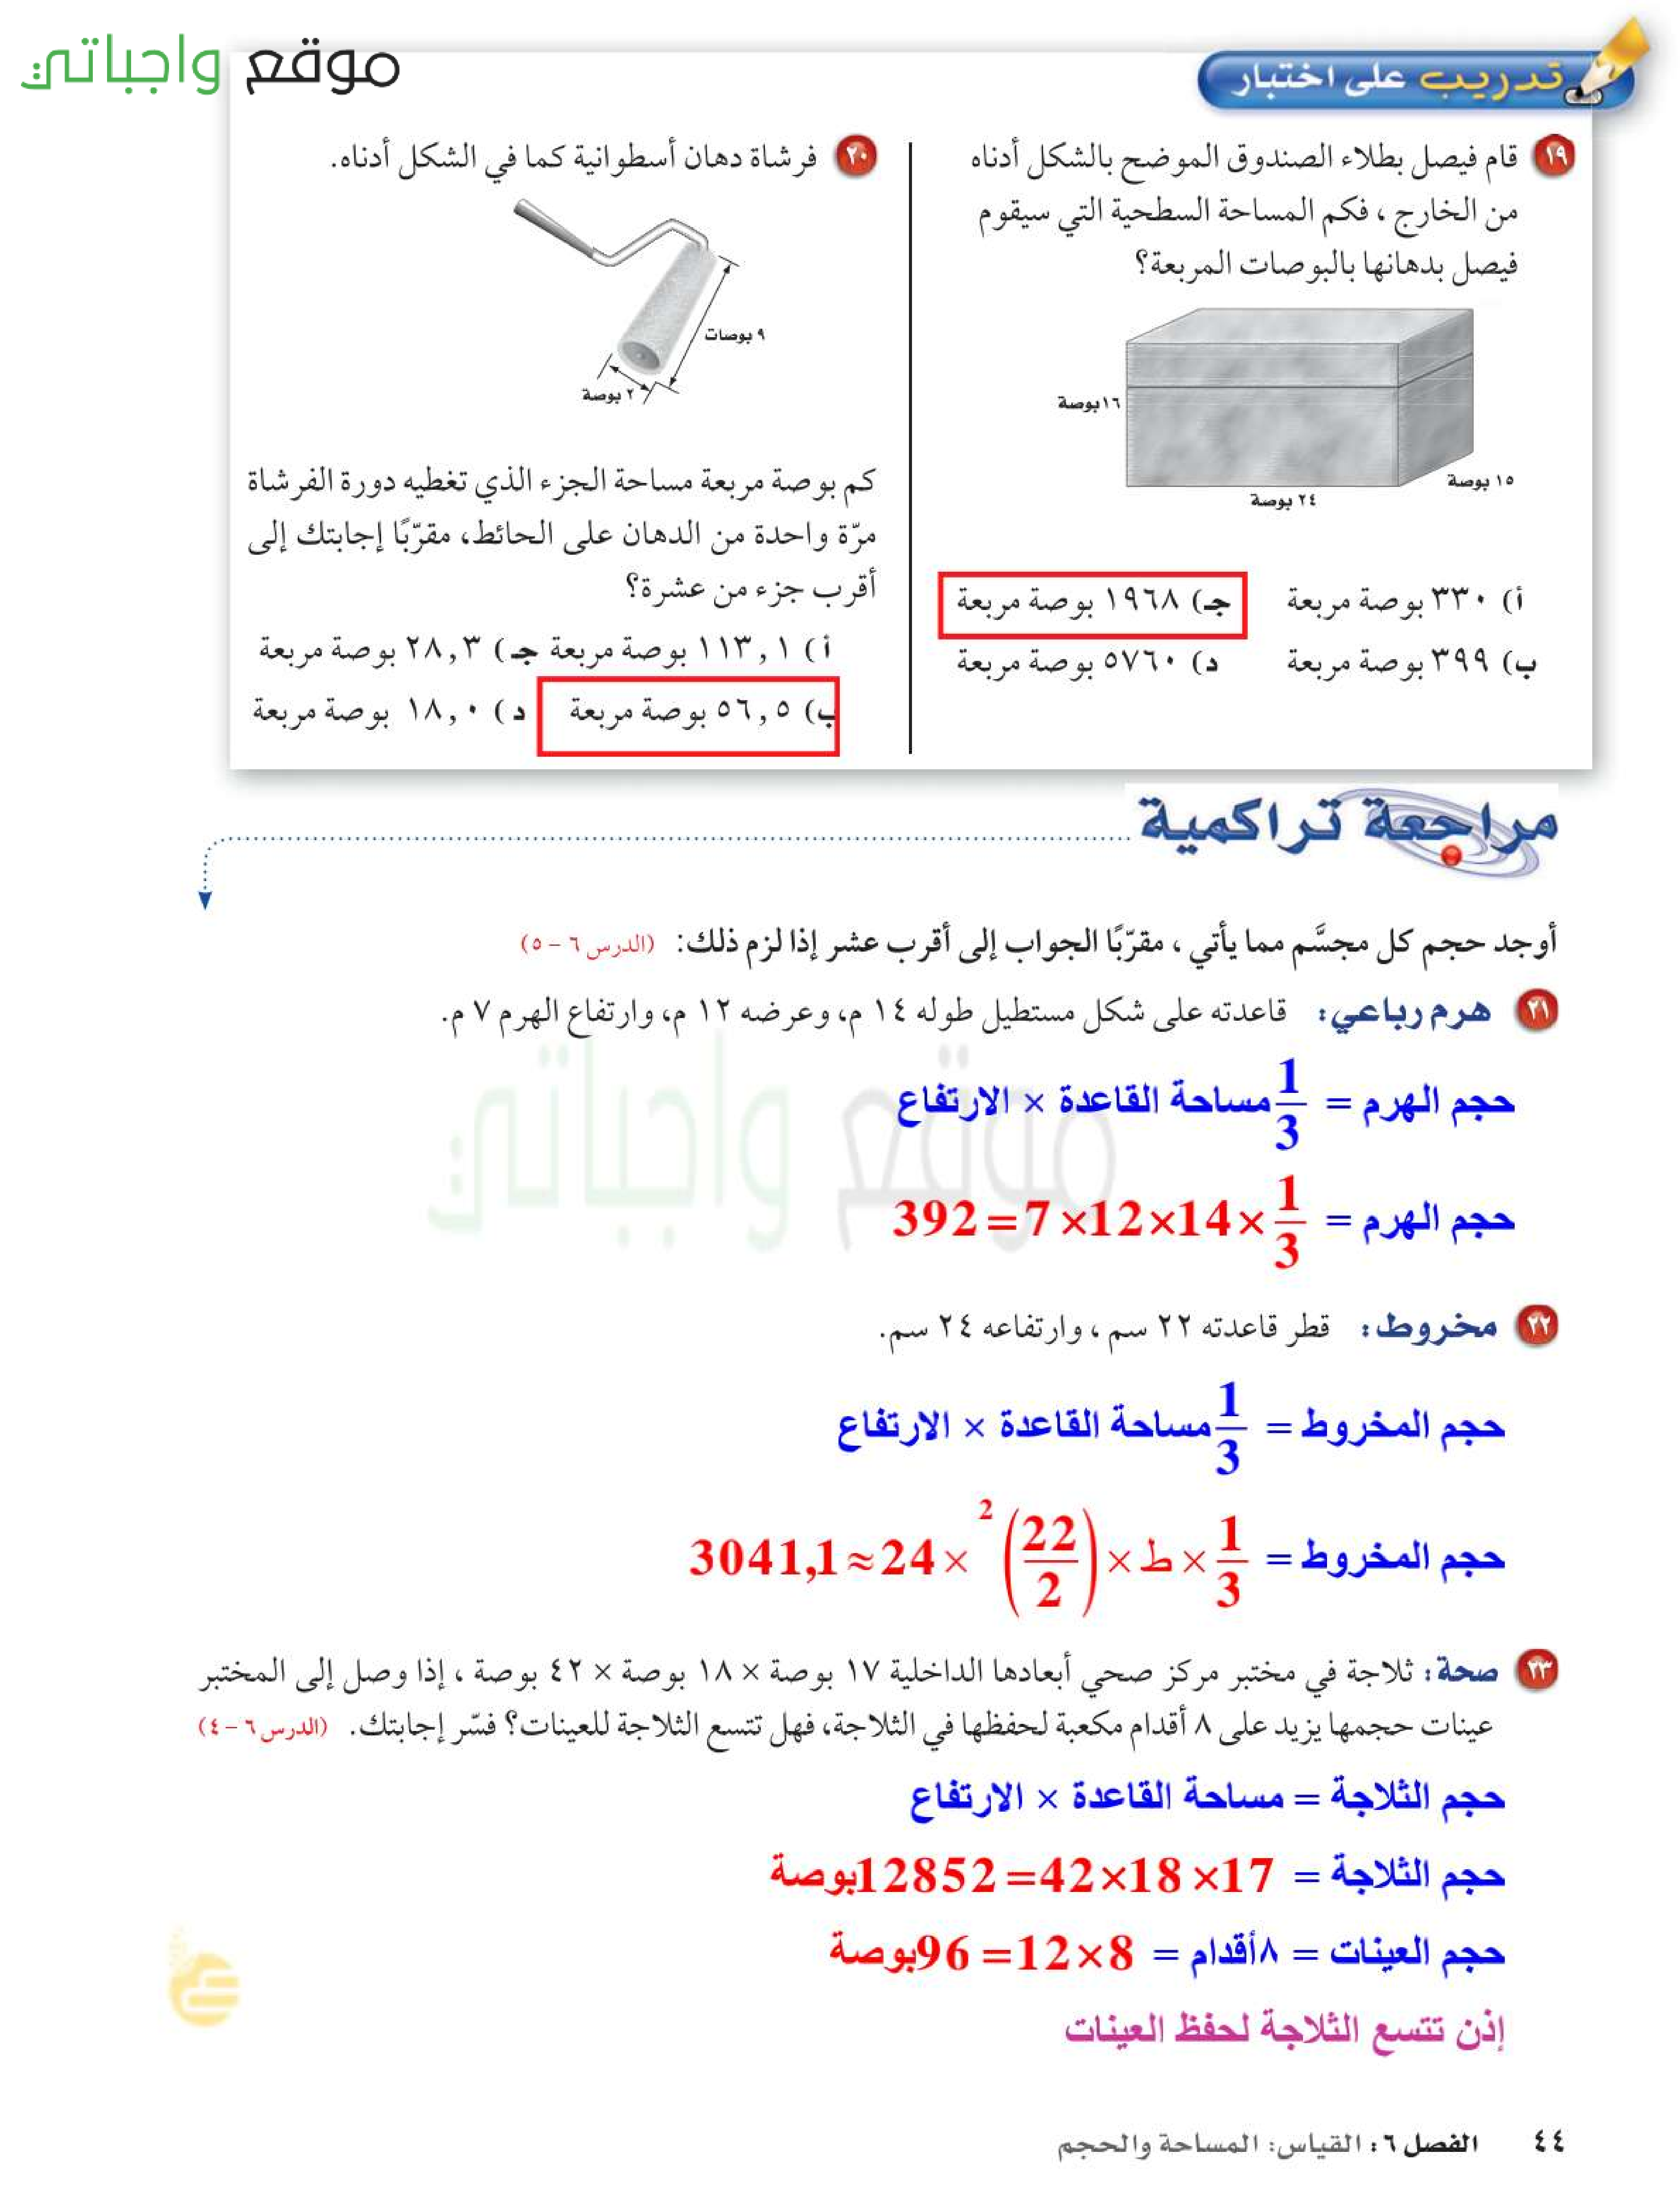 موقع واجباتي
تدريب على اختبار
١٩ قام فيصل بطلاء الصندوق الموضح بالشكل أدناه
من الخارج ، فكم المساحة السطحية التي سيقوم
فيصل بدهانها بالبوصات المربعة؟
١٦بوصة
١٥ بوصة
٢٤ بوصة
أ) ٣٣٠ بوصة مربعة
جـ) ١٩٦٨ بوصة مربعة
ب) ٣٩٩ بوصة مربعة
د) ٥٧٦٠ بوصة مربعة
٢٠ فرشاة دهان أسطوانية كما في الشكل أدناه.
٩ بوصات
٢ بوصة
كم بوصة مربعة مساحة الجزء الذي تغطيه دورة الفرشاة
مرّة واحدة من الدهان على الحائط، مقرّبًا إجابتك إلى
أقرب جزء من عشرة؟
أ) ١١٣,١ بوصة مربعة جـ) ٢٨,٣ بوصة مربعة
ب) ٥٦,٥ بوصة مربعة د) ١٨,٠ بوصة مربعة
مراجعة تراكمية
أوجد حجم كل مجسَّم مما يأتي ، مقرّبًا الجواب إلى أقرب عشر إذا لزم ذلك: (الدرس ٦ - ٥)
٢١ هرم رباعي: قاعدته على شكل مستطيل طوله ١٤ م، وعرضه ١٢ م، وارتفاع الهرم ٧ م.
موقع واجباتي
حجم الهرم = 1/3 مساحة القاعدة × الارتفاع
حجم الهرم = 1/3 ×14×12× 7 = 392
٢٢ مخروط: قطر قاعدته ٢٢ سم ، وارتفاعه ٢٤ سم.
حجم المخروط = 1/3 مساحة القاعدة × الارتفاع
حجم المخروط = 1/3 × ط × (22/2)² × 24 ≈ 3041,1
٢٣ صحة: ثلاجة في مختبر مركز صحي أبعادها الداخلية ١٧ بوصة × ١٨ بوصة × ٤٢ بوصة ، إذا وصل إلى المختبر
عينات حجمها يزيد على ٨ أقدام مكعبة لحفظها في الثلاجة، فهل تتسع الثلاجة للعينات؟ فسّر إجابتك. (الدرس ٦ - ٤)
حجم الثلاجة = مساحة القاعدة × الارتفاع
حجم الثلاجة = 17× 18×42= 12852بوصة
حجم العينات = ٨أقدام = 8×12= 96بوصة
إذن تتسع الثلاجة لحفظ العينات
٤٤ الفصل ٦: القياس: المساحة والحجم